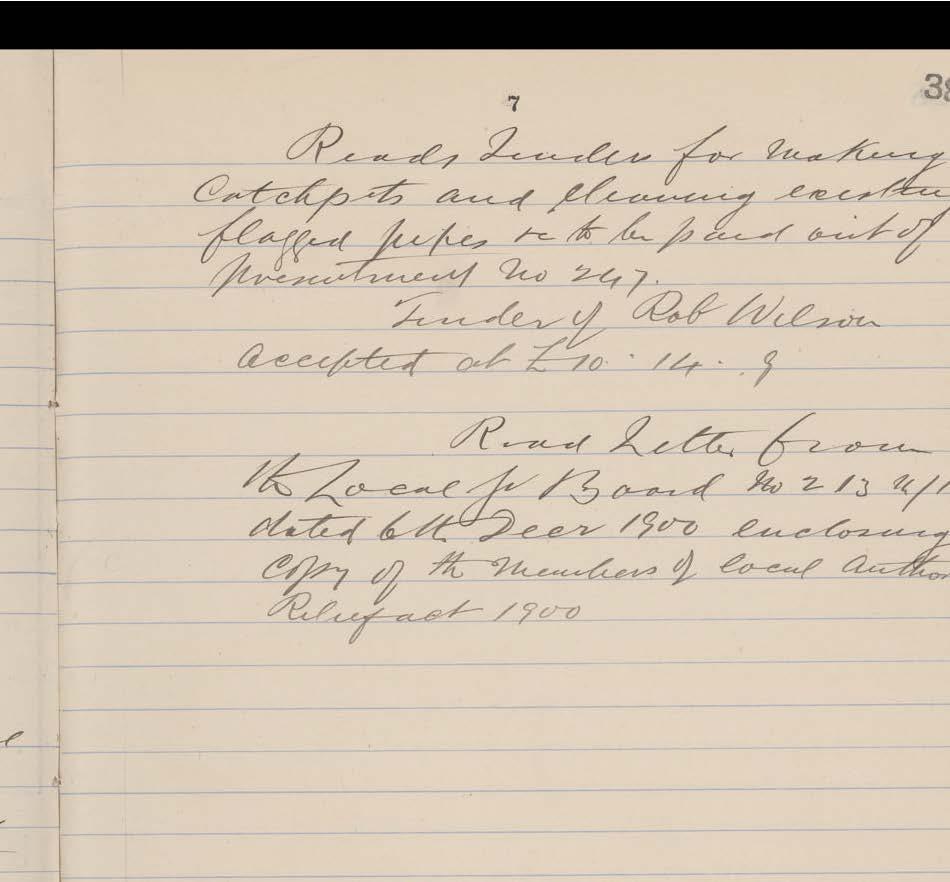 7
38
Reads Tenders for making
Catchpits and Cleaning existin
flagged pipes &c to be paid out of
presentment No 247.
Tender of Rob Wilson
accepted at £10 . 14 . 9
Read Letter from
the Local Gv Board No 213
dated 6th Decr 1900 enclosing
Copy of the Members of Local Author
Relief act 1900